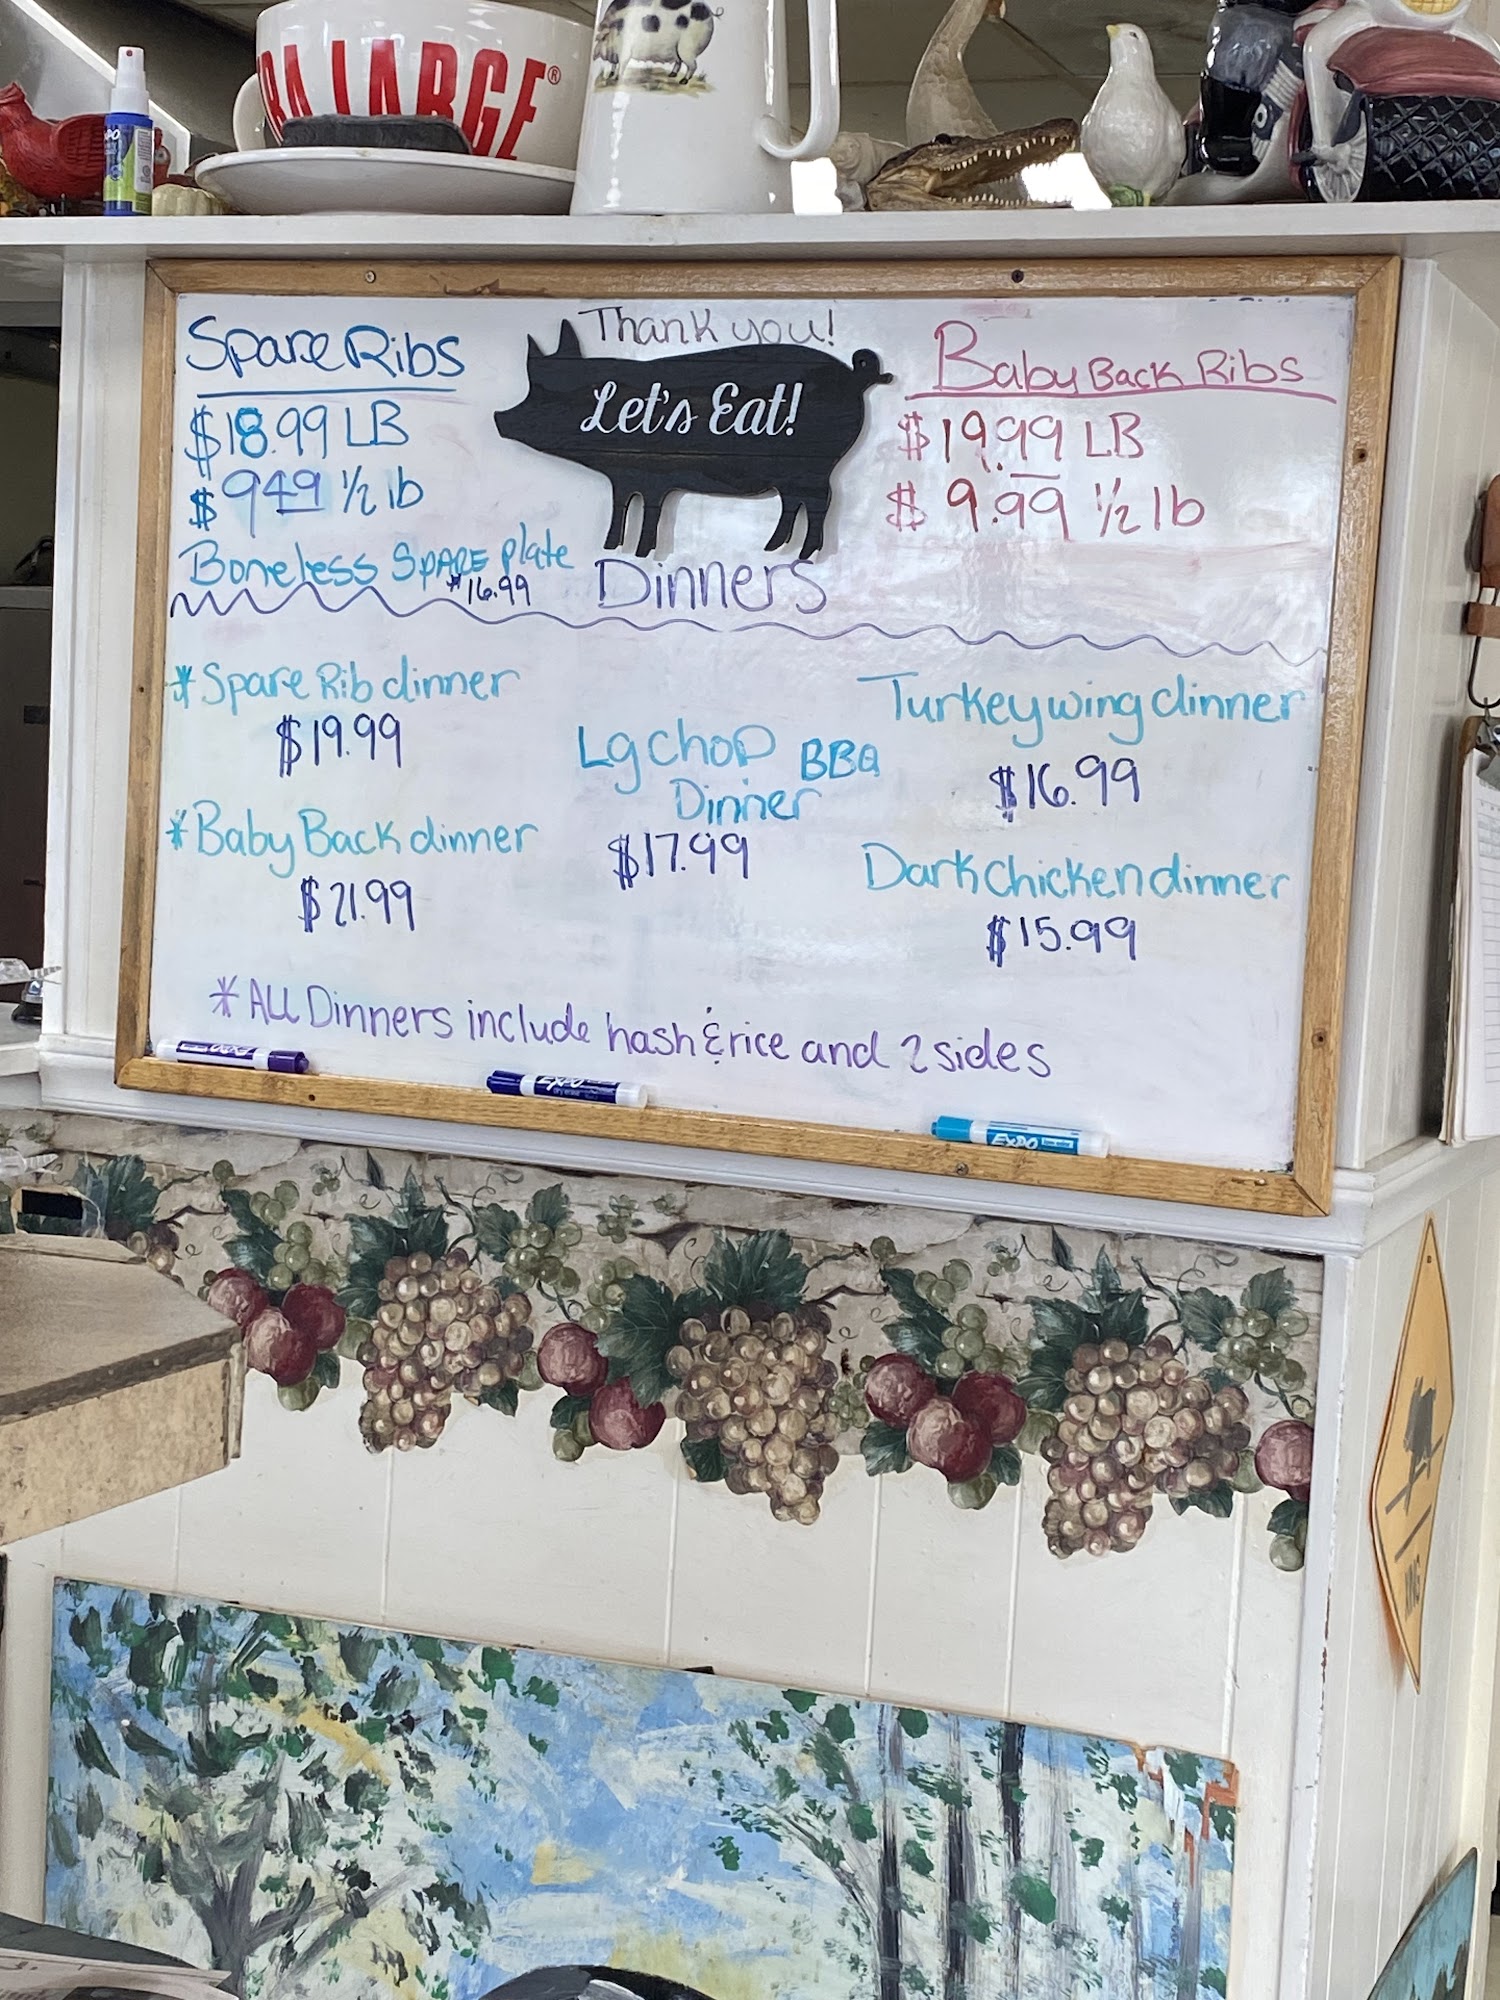 RA LARGE®
Thank you!
Let's Eat!
Spare Ribs
$18.99 LB
$9.49 1/2 lb
Boneless Spare Plate
$16.99
Baby Back Ribs
$19.99 LB
$9.99 1/2 lb
Dinners
*Spare Rib dinner
$19.99
*Baby Back dinner
$21.99
Lg Chop BBQ
Dinner
$17.99
Turkey wing dinner
$16.99
Dark Chicken dinner
$15.99
*ALL Dinners include hash & rice and 2 sides
EXPO
EXPO
EXPO